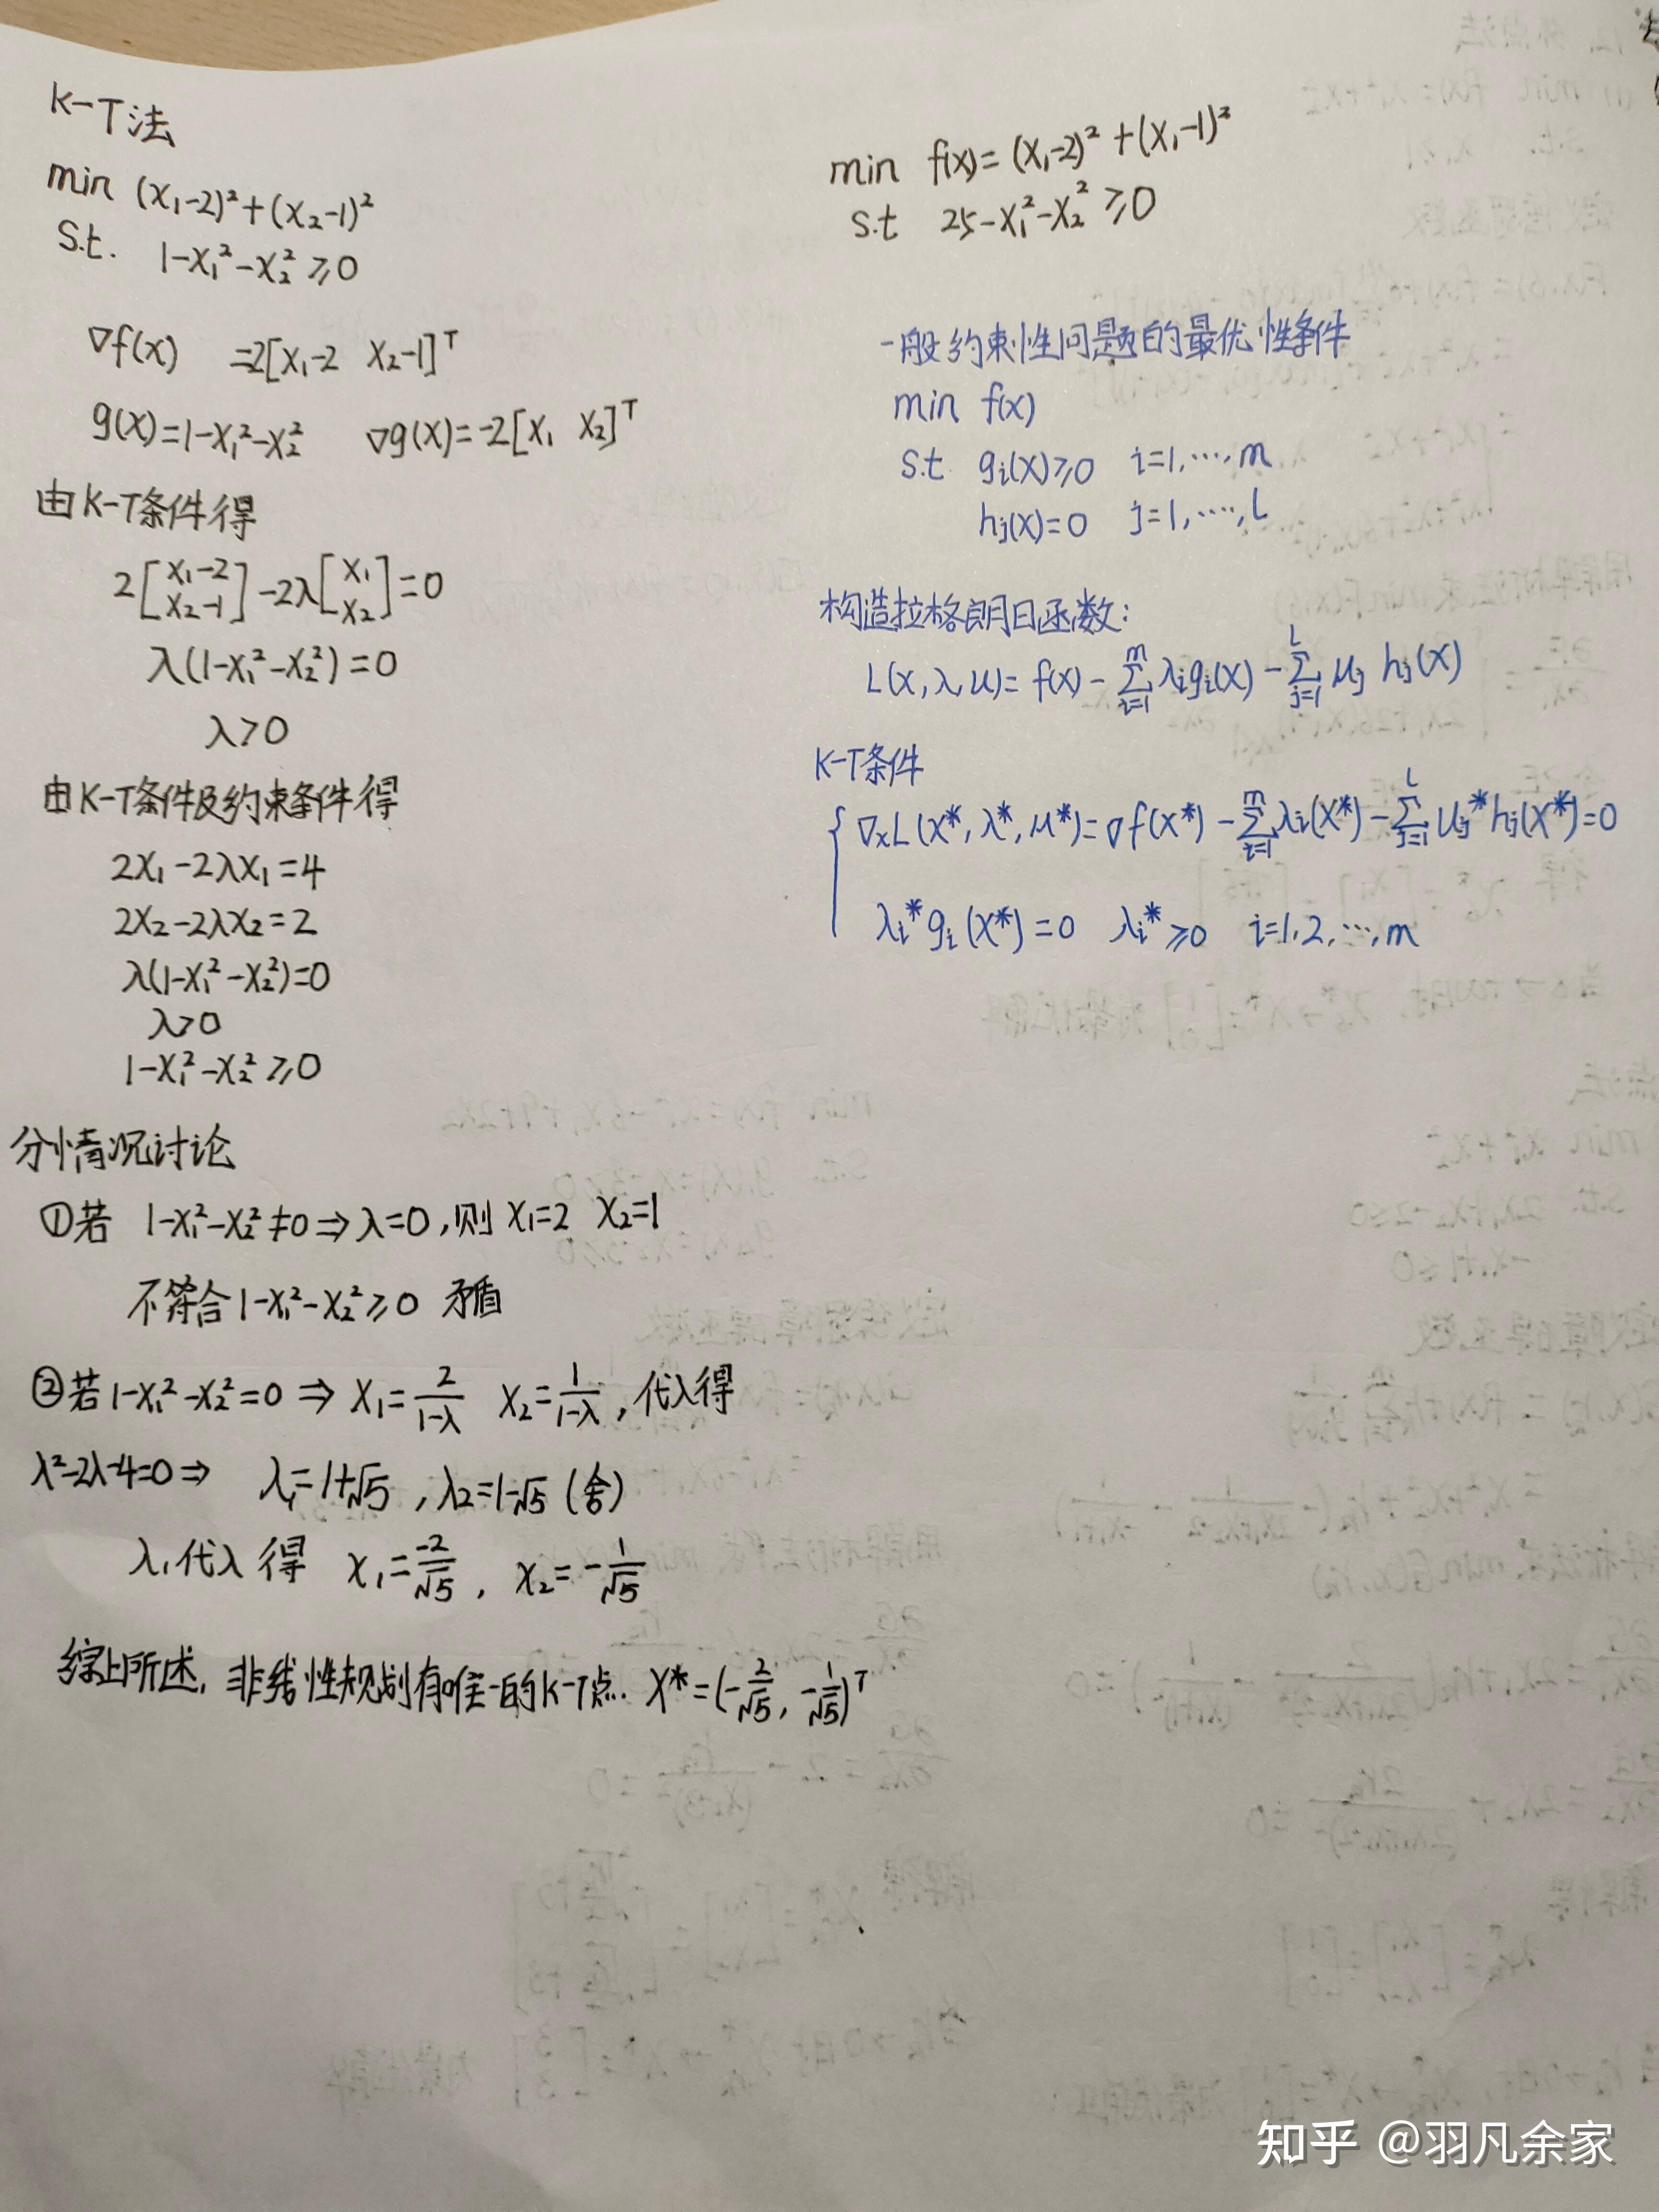 K-T法
min (x₁-2)²+(x₂-1)²
S.t. 1-x₁²-x₂²≥0
∇f(x) =2[x₁-2 x₂-1]ᵀ
g(x)=1-x₁²-x₂² ∇g(x)=-2[x₁ x₂]ᵀ
由K-T条件得
2[x₁-2 x₂-1]-2λ[x₁ x₂]=0
λ(1-x₁²-x₂²)=0
λ>0
由K-T条件及约束条件得
2x₁-2λx₁=4
2x₂-2λx₂=2
λ(1-x₁²-x₂²)=0
λ>0
1-x₁²-x₂²≥0
分情况讨论
①若 1-x₁²-x₂²≠0⇒λ=0,则 x₁=2 x₂=1
不符合1-x₁²-x₂²≥0 矛盾
②若1-x₁²-x₂²=0⇒ x₁=2/(1-λ) x₂=1/(1-λ),代入得
λ²-2λ-4=0⇒ λ₁=1+√5,λ₂=1-√5(舍)
λ₁代入得 x₁=-2/√5, x₂=-1/√5
综上所述,非线性规划有唯一的K-T点. X*=(-2/√5, -1/√5)ᵀ
min f(x)=(x₁-2)²+(x₁-1)²
s.t 25-x₁²-x₂²≥0
一般约束性问题的最优性条件
min f(x)
s.t gᵢ(x)≥0 i=1,…,m
hⱼ(x)=0 j=1,…,l
构造拉格朗日函数:
L(x,λ,μ)= f(x)-∑ᵢ₌₁ᵐλᵢgᵢ(x)-∑ⱼ₌₁ˡμⱼ hⱼ(x)
K-T条件
{∇ₓL(x*,λ*,μ*)=∇f(x*)-∑ᵢ₌₁ᵐλᵢ(x*)-∑ⱼ₌₁ˡμⱼ*hⱼ(x*)=0
λᵢ*gᵢ(x*)=0 λᵢ*≥0 i=1,2,…,m
知乎 @羽凡余家